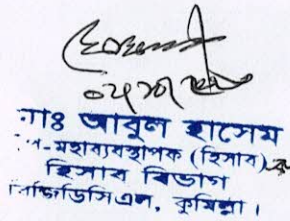 মোঃ আবুল হাসেম
উপ-মহাব্যবস্থাপক (হিসাব)
হিসাব বিভাগ
বিজিডিসিএল, কুমিল্লা।